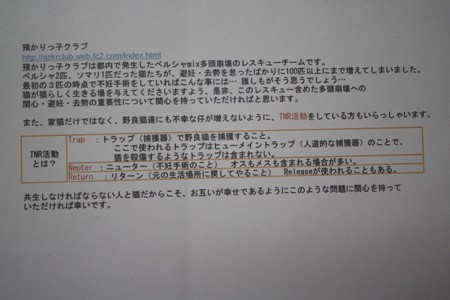 預かりっ子クラブ
http://azkrclub.web.fc2.com/index.html
預かりっ子クラブは都内で発生したペルシャmix多頭崩壊のレスキューチームです。
ペルシャ2匹、ソマリ1匹だった猫たちが、避妊・去勢を怠ったばかりに100匹以上にまで増えてしまいました。
最初の3匹の時点で不妊手術をしていればこんな事には… 誰しもがそう思うでしょう…
猫が猫らしく生きる場を与えてくださいますよう、是非、このレスキュー含めた多頭崩壊への
関心・避妊・去勢の重要性について関心を持っていただければと思います。
また、家猫だけではなく、野良猫達にも不幸な仔が増えないように、TNR活動をしている方もいらっしゃいます。
TNR活動とは?
Trap :トラップ(捕獲器)で野良猫を捕獲すること。
ここで使われるトラップはヒューメイントラップ(人道的な捕獲器)のことで、
猫を殺傷するようなトラップは含まれない。
Neuter :ニューター(不妊手術のこと) オスもメスも含まれる場合が多い。
Return :リターン(元の生活場所に戻してやること) Releaseが使われることもある。
共生しなければならない人と猫だからこそ、お互いが幸せであるようにこのような問題に関心を持って
いただければ幸いです。